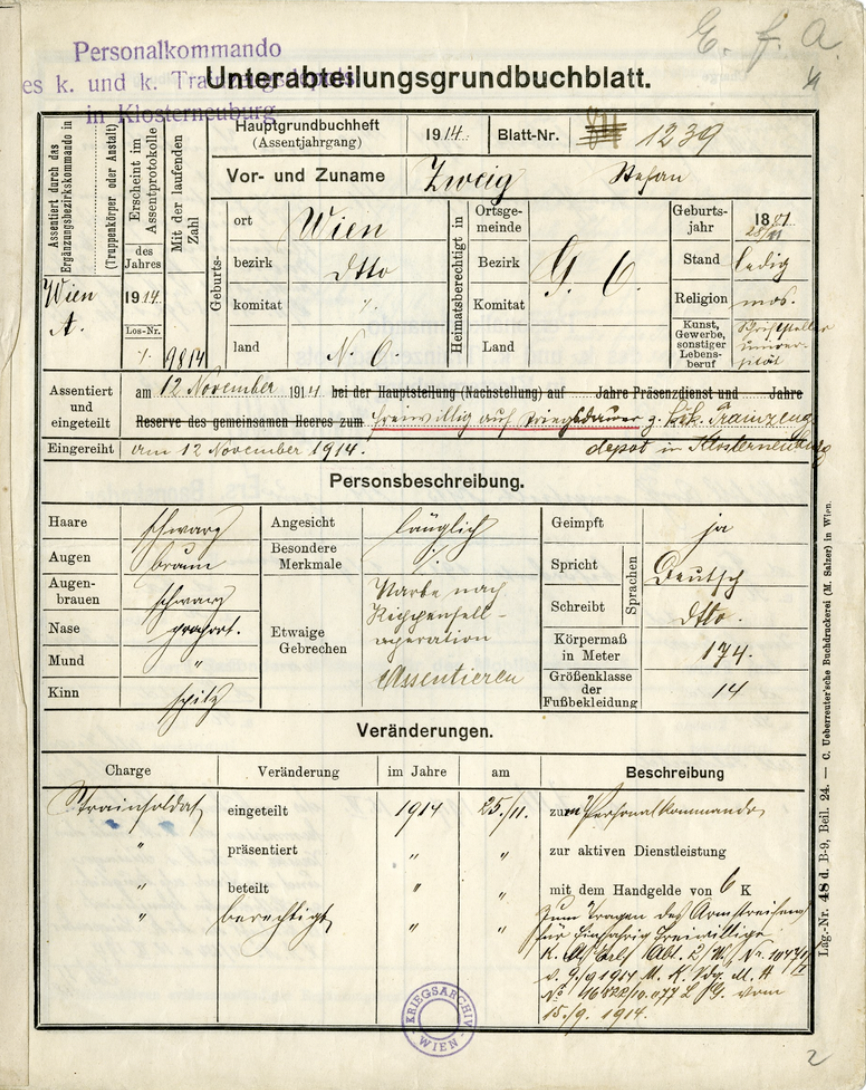 E. f. a.
Personalkommando
es k. und k. Tra
in Klosterneuburg
Unterabteilungsgrundbuchblatt.
Assentiert durch das Ergänzungsbezirkskommando in
(Truppenkörper oder Anstalt)
Wien
A.
Erscheint im Assentprotokolle
des Jahres
1914.
Los-Nr.
%
Mit der laufenden Zahl
9814
Hauptgrundbuchheft
(Assentjahrgang)
1914.
Blatt-Nr.
1239
Vor- und Zuname
Zweig Stefan
Geburts-
ort
Wien
bezirk
dtto
komitat
%
land
N. Ö.
Heimatsberechtigt in
Ortsge-
meinde
Bezirk
Komitat
Land
G. G.
Geburts-
jahr
1881
28/11
Stand
ledig
Religion
mos.
Kunst,
Gewerbe,
sonstiger
Lebens-
beruf
Schriftsteller
Assentiert
und
eingeteilt
am 12 November 1914 bei der Hauptstellung (Nachstellung) auf Jahre Präsenzdienst und Jahre
Reserve des gemeinsamen Heeres zum freiwillig auf Kriegsdauer z. k.u.k. Trainzeug-
Eingereiht
am 12 November 1914.
depot in Klosterneuburg
Personsbeschreibung.
Haare
schwarz
Augen
braun
Augen-
brauen
schwarz
Nase
proport.
Mund
"
Kinn
spitz
Angesicht
länglich
Besondere
Merkmale
%
Etwaige
Gebrechen
Narbe nach
Rippenfell-
operation
Assentieren
Geimpft
ja
Spricht
Deutsch
Schreibt
dtto.
Sprachen
Körpermaß
in Meter
174.
Größenklasse
der
Fußbekleidung
14
Veränderungen.
Charge Veränderung im Jahre am Beschreibung
Trainsoldat eingeteilt 1914 25./11. zum Personalkommando
" präsentiert " " zur aktiven Dienstleistung
" beteilt " " mit dem Handgelde von 6 K
" berechtigt " " Zum Tragen des Armstreifens
für Einjährig Freiwillige
Erl. Abt. 2/W. Nr.
v. 9./9 1914 M. K. Vdg.
No vom
15./9. 1914.
KRIEGSARCHIV
WIEN
Lag.-Nr. 48 d. B-9, Beil. 24. — C. Ueberreuter'sche Buchdruckerei (M. Salzer) in Wien.
2